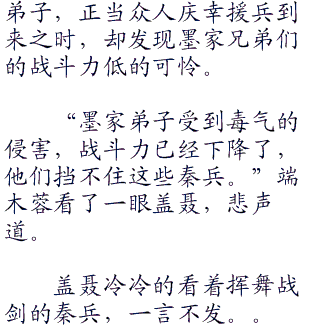 弟子，正当众人庆幸援兵到
来之时，却发现墨家兄弟们
的战斗力低的可怜。
“墨家弟子受到毒气的
侵害，战斗力已经下降了，
他们挡不住这些秦兵。”端
木蓉看了一眼盖聂，悲声
道。
盖聂冷冷的看着挥舞战
剑的秦兵，一言不发。。